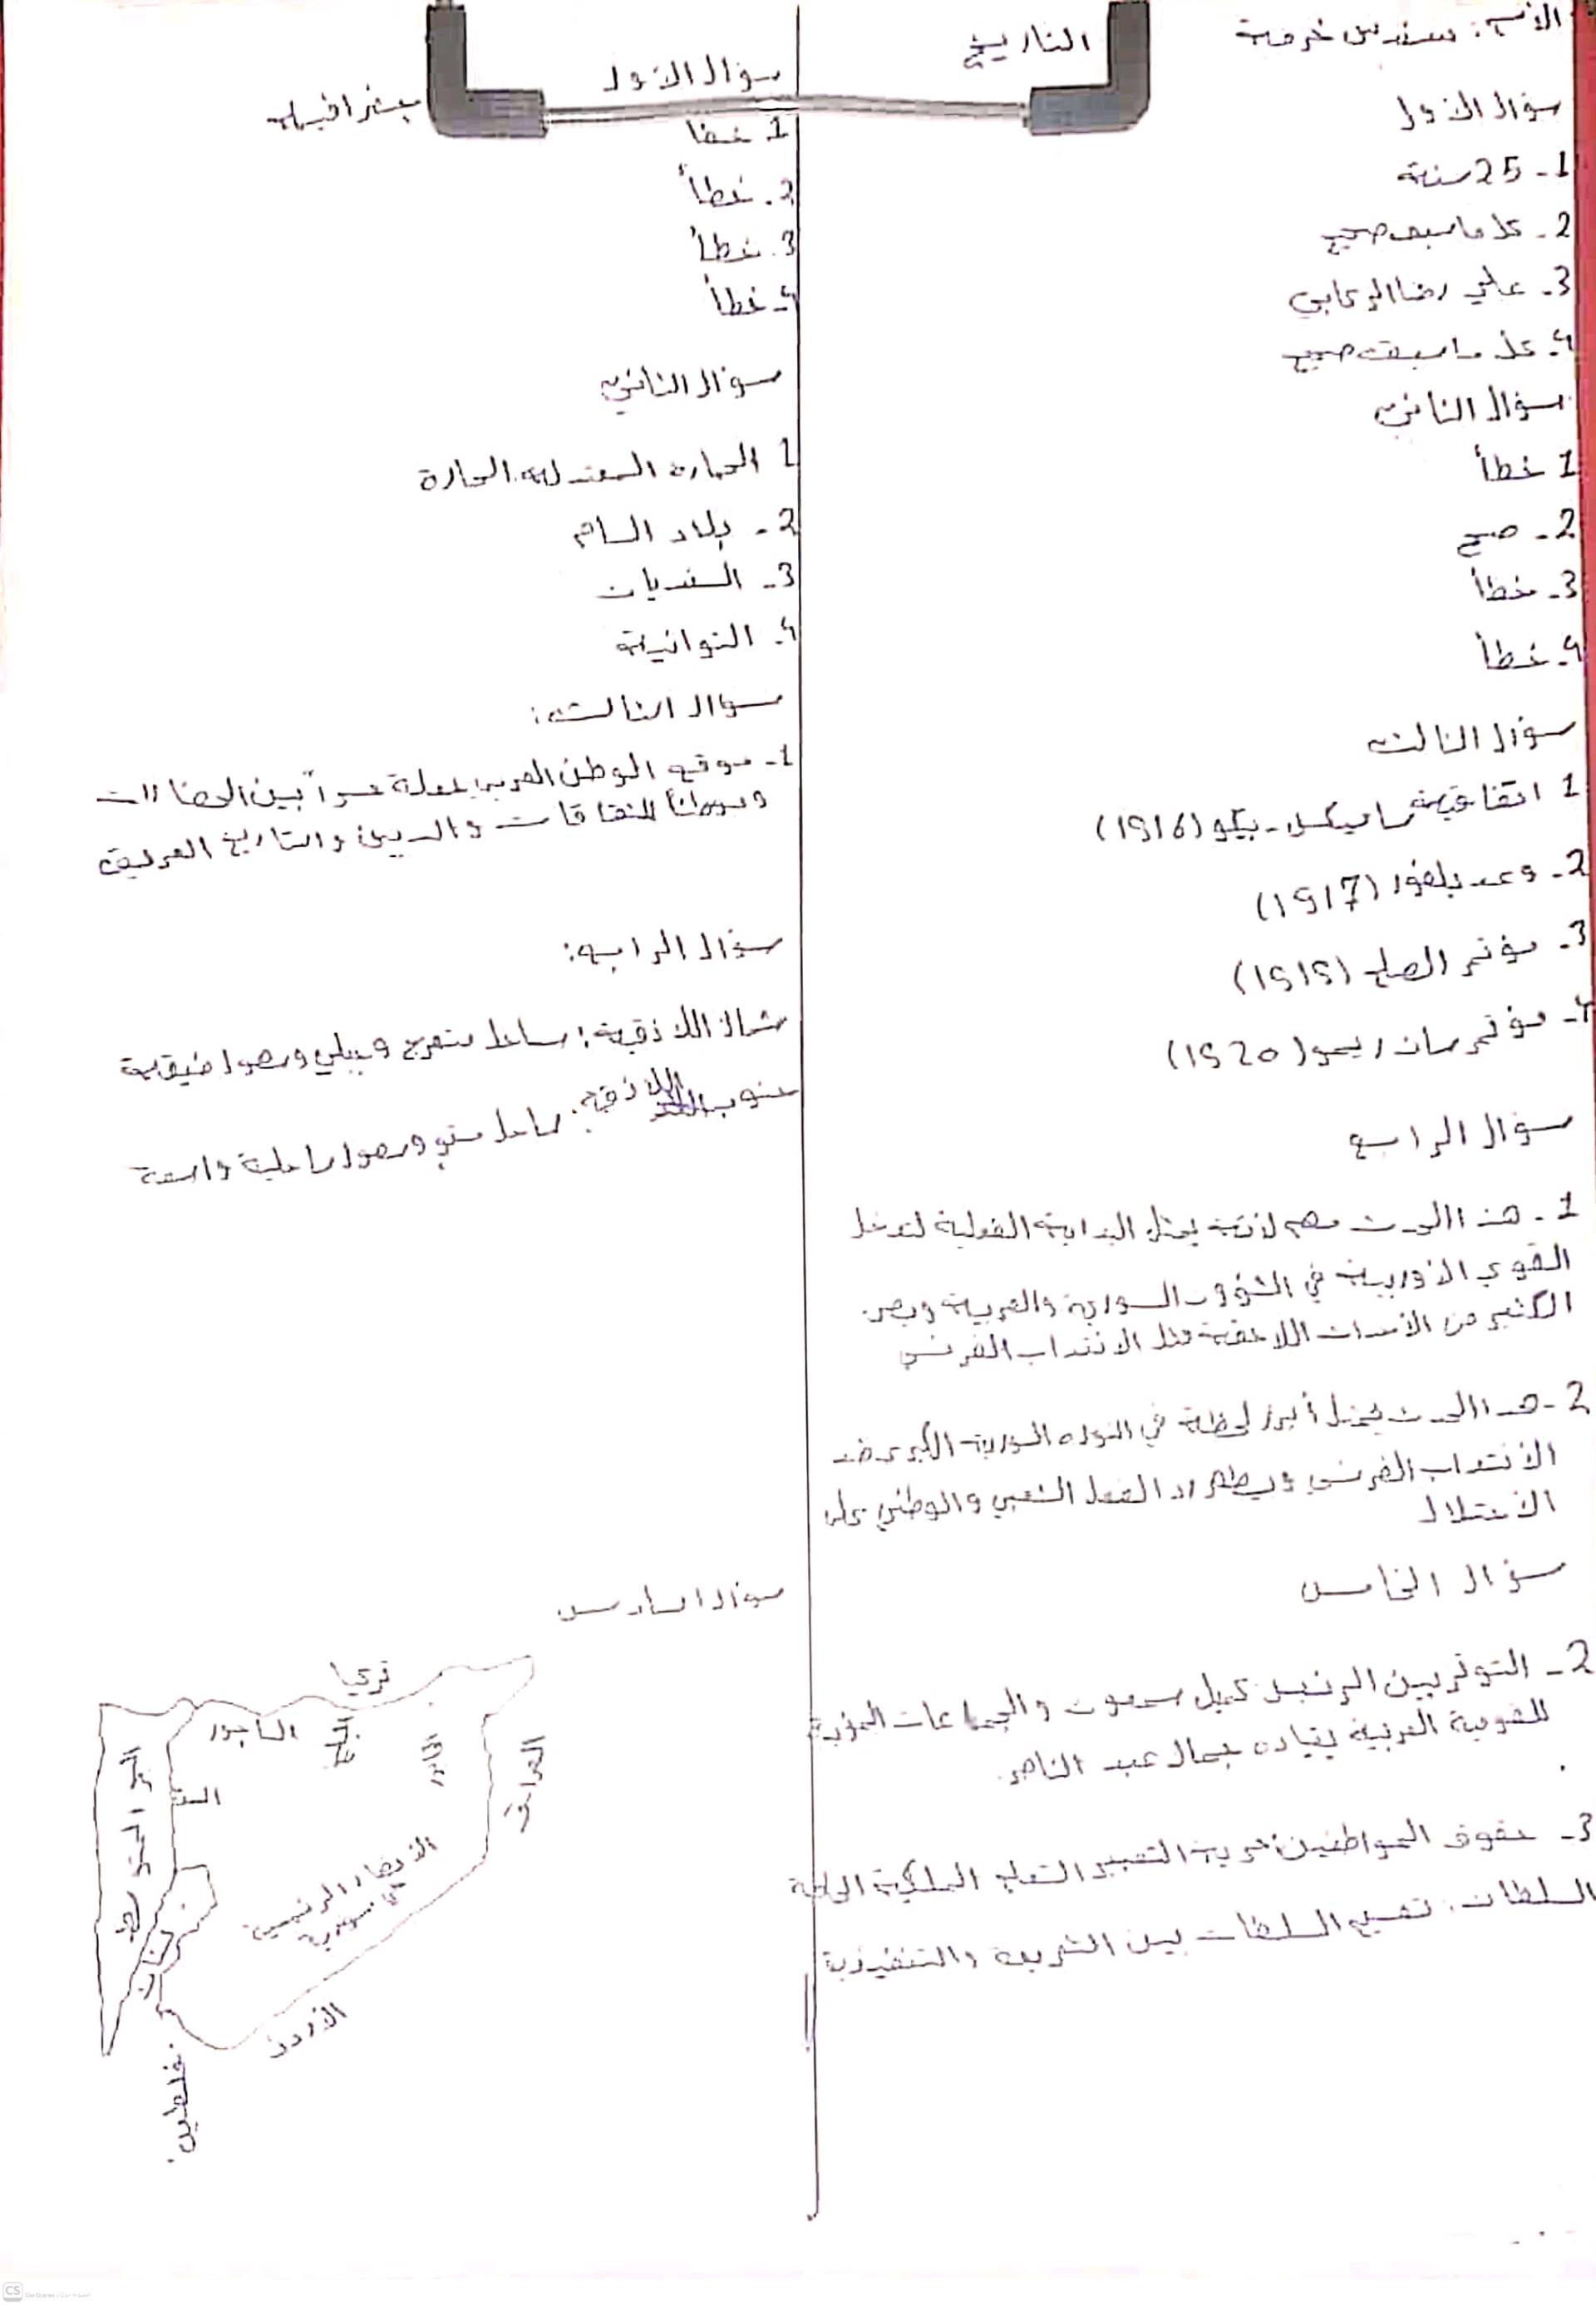 الاسم: سندس خرمة
التاريخ
سؤال الاول
1- 25 سنة
2- كل ما سبق صحيح
3- علي رضا الركابي
4- كل ما سبق صحيح
سؤال الثاني
1 خطأ
2- صح
3- خطأ
4- خطأ
سؤال الثالث
1 اتفاقية سايكس-بيكو (1916)
2- وعد بلفور (1917)
3- مؤتمر الصلح (1919)
4- مؤتمر سان ريمو (1920)
سؤال الرابع
1- هذا الحدث مهم لأنه يمثل البداية الفعلية لتدخل
القوى الأوربية في الشؤون السورية والعربية
الكثير من الأحداث اللاحقة مثل الانتداب الفرنسي
2- هذا الحدث يمثل أبرز لحظة في الثورة السورية الكبرى ضد
الأنتداب الفرنسي ويظهر رد الفعل الشعبي والوطني على
الأحتلال
سؤال الخامس
2- التوتر بين الرئيس كميل شمعون والجماعات المؤيدة
للقومية العربية بقيادة جمال عبد الناصر.
3- حقوق المواطنين: حرية التعبير التعليم الملكية الخاصة
السلطات: تقسيم السلطات بين التشريعية والتنفيذية
جغرافية
سؤال الاول
1 خطأ
2. خطأ
3. خطأ
4- خطأ
سؤال الثاني
1 الحارة المعتدلة الحارة
2- بلاد الشام
3- السنديان
4- الثوانية
سؤال الثالث:
1- موقع الوطن العربي جعله جسراً بين الحضارات
للثقافات والدين والتاريخ العريق
سؤال الرابع:
شمال اللاذقية: ساحل متعرج وجبلي وسهول ضيقة
جنوب اللاذقية: ساحل وسهول ساحلية واسعة
سؤال السادس
تركيا
الساجور
البليخ
الخابور
العراق
البحر المتوسط
السن
الأنهار الرئيسية
في سورية
لبنان
الأردن
فلسطين
CS